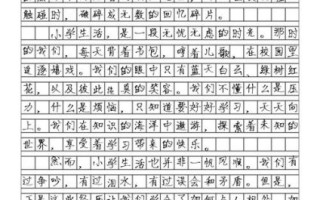 触碰时，破碎成无数的回忆碎片。
小学生活，是一段无忧无虑的时光。那时
的我们，每天背着书包，哼着儿歌，在校园里
追逐嬉戏。我们的眼中只有蓝天白云、绿树红
花，以及彼此纯真的笑容。我们不懂什么是压
力，什么是烦恼，只知道要好好学习，天天向
上。我们在知识的海洋中遨游，探索着未知的
世界，享受着学习带来的快乐。
然而，小学生活也并非一帆风顺。我们有
过争吵，有过泪水，有过误会和矛盾。但是，